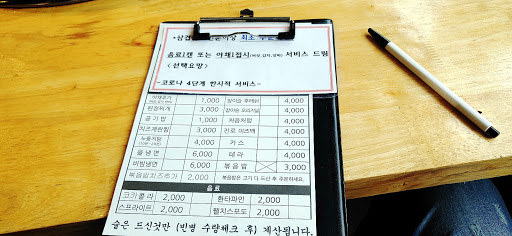 음료1캔 또는 야채1접시 서비스 드림
<선택요망>
-코로나 4단계 한시적 서비스-
야채추가 1,000 참이슬 후레쉬 4,000
된장찌개 3,000 참이슬 오리지널 4,000
공기밥 1,000 처음처럼 4,000
치즈계란찜 3,000 진로 이즈백 4,000
누룽지탕 4,000 카스 4,000
물냉면 6,000 테라 4,000
비빔냉면 6,000 볶음밥 3,000
볶음밥치즈추가 2,000 볶음밥은 고기 다 드신 후 주문하세요.
음료
코카콜라 2,000 환타파인 2,000
스프라이트 2,000 웰치스포도 2,000
술은 드신것만 (빈병 수량체크 후) 계산됩니다.